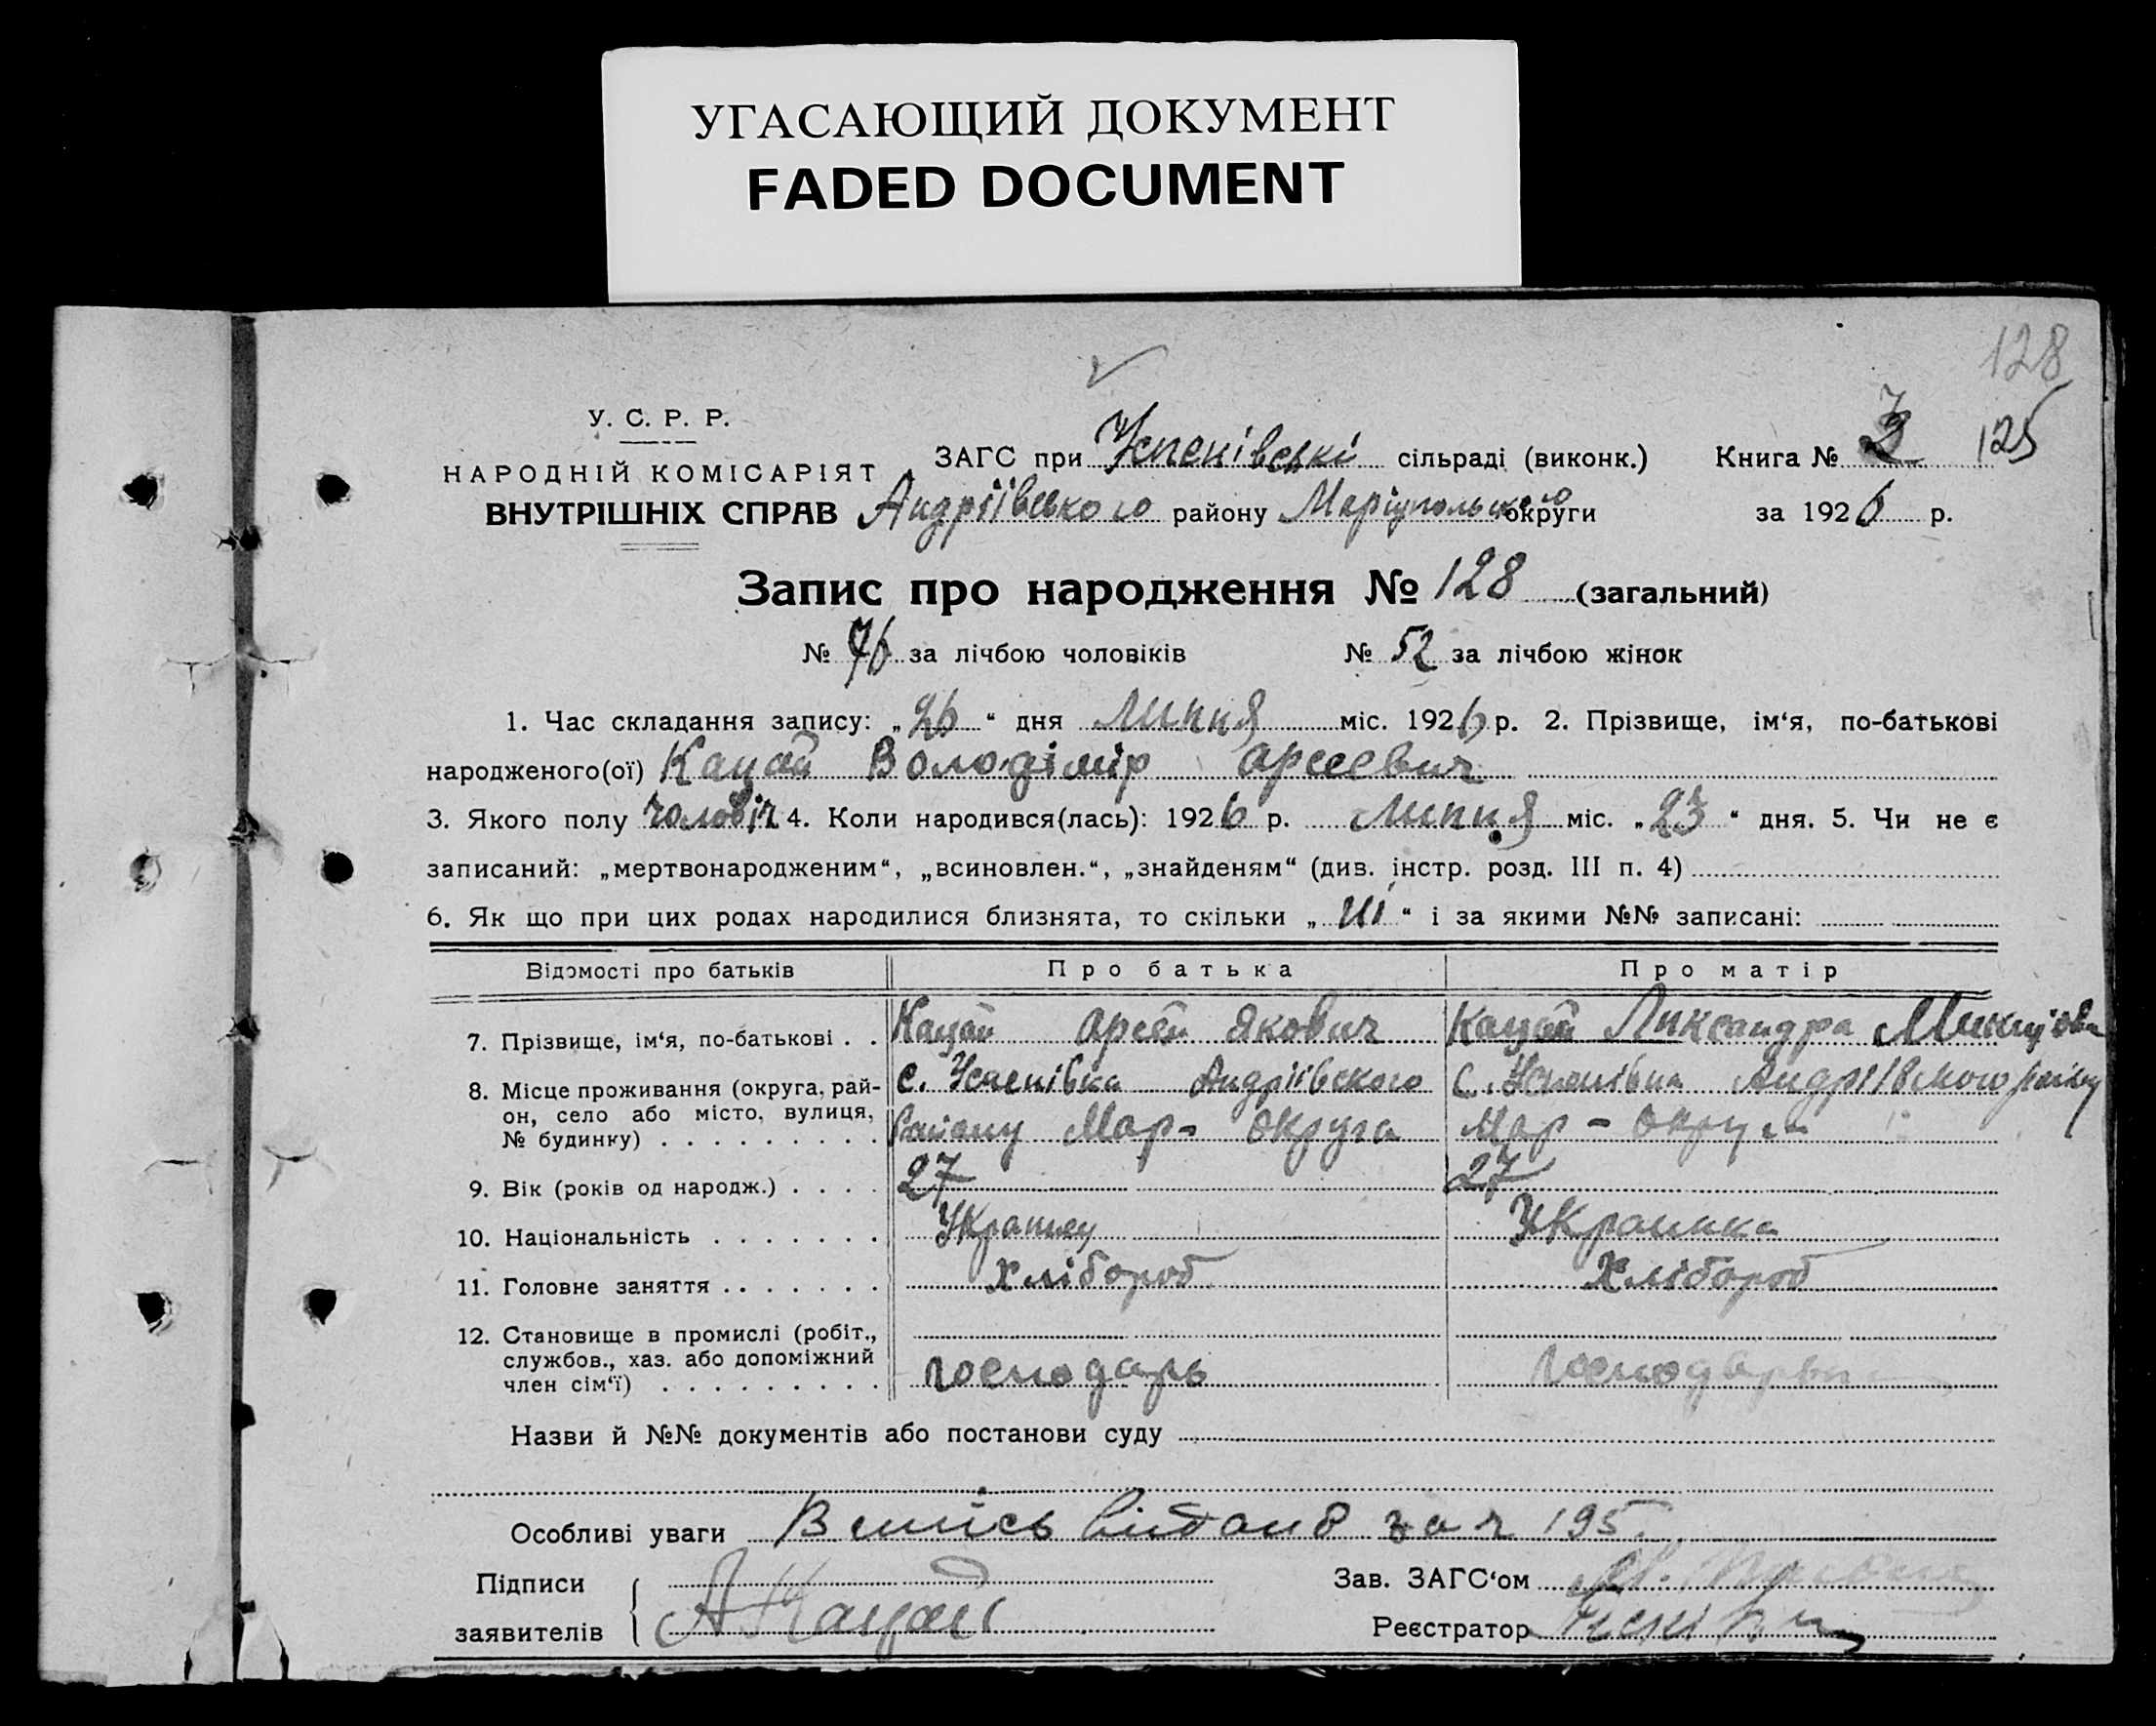 УГАСАЮЩИЙ ДОКУМЕНТ
FADED DOCUMENT
128
У. С. Р. Р.
НАРОДНІЙ КОМІСАРІЯТ
ВНУТРІШНІХ СПРАВ
ЗАГС при Успенівські сільраді (виконк.) Книга № 125
Андріївського району Маріупольського округи за 1926 р.
Запис про народження № 128 (загальний)
№ 76 за лічбою чоловіків № 52 за лічбою жінок
1. Час складання запису: „26“ дня Липня міс. 1926 р. 2. Прізвище, ім‘я, по-батькові
народженого(ої) Кацай Володімір Арсеевич
3. Якого полу чоловіч 4. Коли народився(лась): 1926 р. Липня міс. „23“ дня. 5. Чи не є
записаний: „мертвонародженим“, „всиновлен.“, „знайденям“ (див. інстр. розд. III п. 4)
6. Як що при цих родах народилися близнята, то скільки „ “ і за якими №№ записані:
Відомості про батьків Про батька Про матір
7. Прізвище, ім‘я, по-батькові . . Кацай Арсей Якович Кацай Ликсандра
8. Місце проживання (округа, рай- с. Успенівка Андріївского с. Успенівка Андріївского району
он, село або місто, вулиця,
№ будинку) . . . . . . . . . району Мар- округа Мар - округи
9. Вік (років од народж.) . . . . 27 27
10. Національність . . . . . . . Украинец Украинка
11. Головне заняття . . . . . . . хлібороб Хлібороб
12. Становище в промислі (робіт.,
службов., хаз. або допоміжний
член сім‘ї) . . . . . . . . . господарь
Назви й №№ документів або постанови суду
Особливі уваги 195
Підписи Зав. ЗАГС‘ом
заявителів АКацай Реєстратор